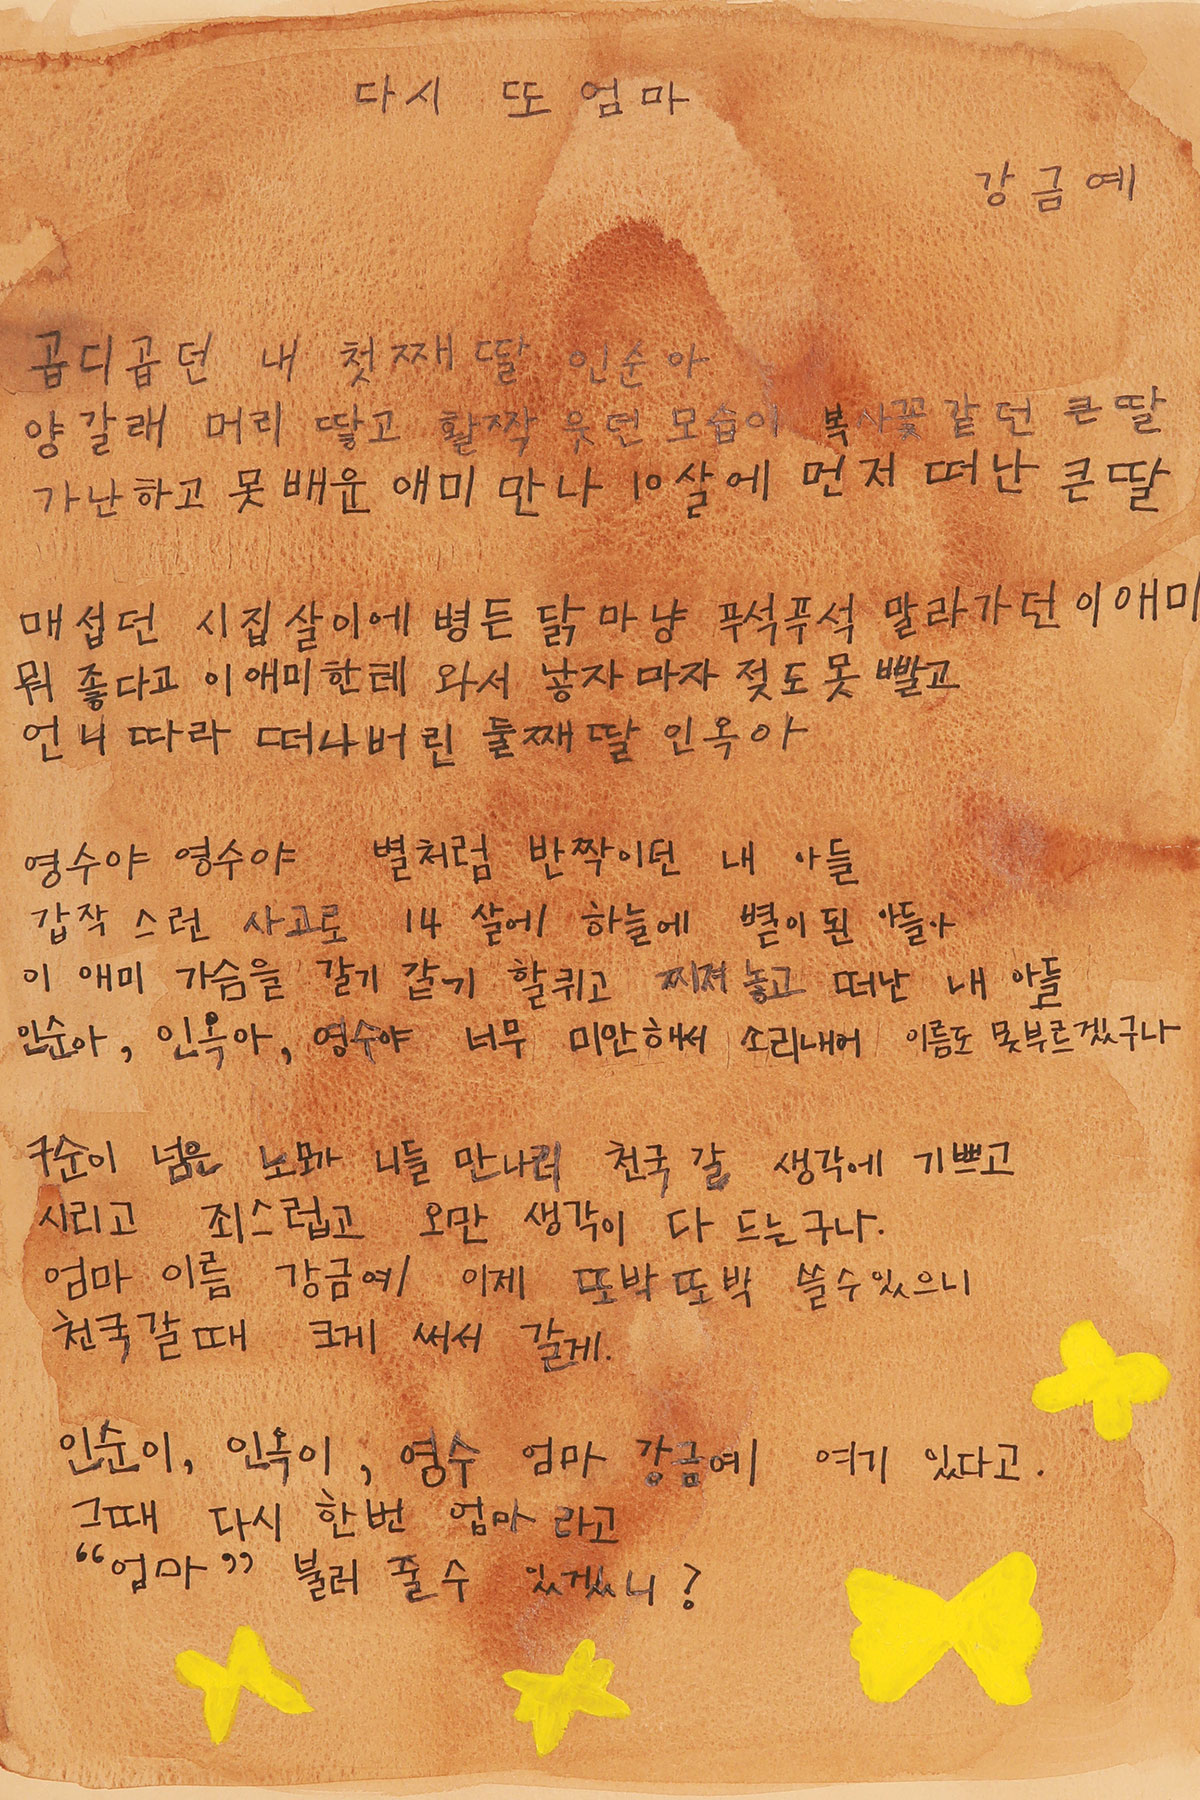 다시 또 엄마
강금예
곱디곱던 내 첫째 딸 인순아
양갈래 머리 땋고 활짝 웃던 모습이 복사꽃 같던 큰딸
가난하고 못 배운 애미 만나 10살에 먼저 떠난 큰딸
매섭던 시집살이에 병든 닭 마냥 푸석푸석 말라가던 이 애미
뭐 좋다고 이 애미한테 와서 낳자마자 젖도 못 빨고
언니 따라 떠나버린 둘째 딸 인옥아
영수야 영수야 별처럼 반짝이던 내 아들
갑작스런 사고로 14살에 하늘에 별이 된 아들아
이 애미 가슴을 갈기갈기 할퀴고 찌져 놓고 떠난 내 아들
인순아, 인옥아, 영수야 너무 미안해서 소리내어 이름도 못 부르겠구나
구순이 넘은 노모가 니들 만나러 천국 갈 생각에 기쁘고
시리고 죄스럽고 오만 생각이 다 드는구나.
엄마 이름 강금예 이제 또박또박 쓸 수 있으니
천국 갈 때 크게 써서 갈게.
인순이, 인옥이, 영수 엄마 강금예 여기 있다고.
그때 다시 한번 엄마라고
“엄마” 불러 줄 수 있겠니?